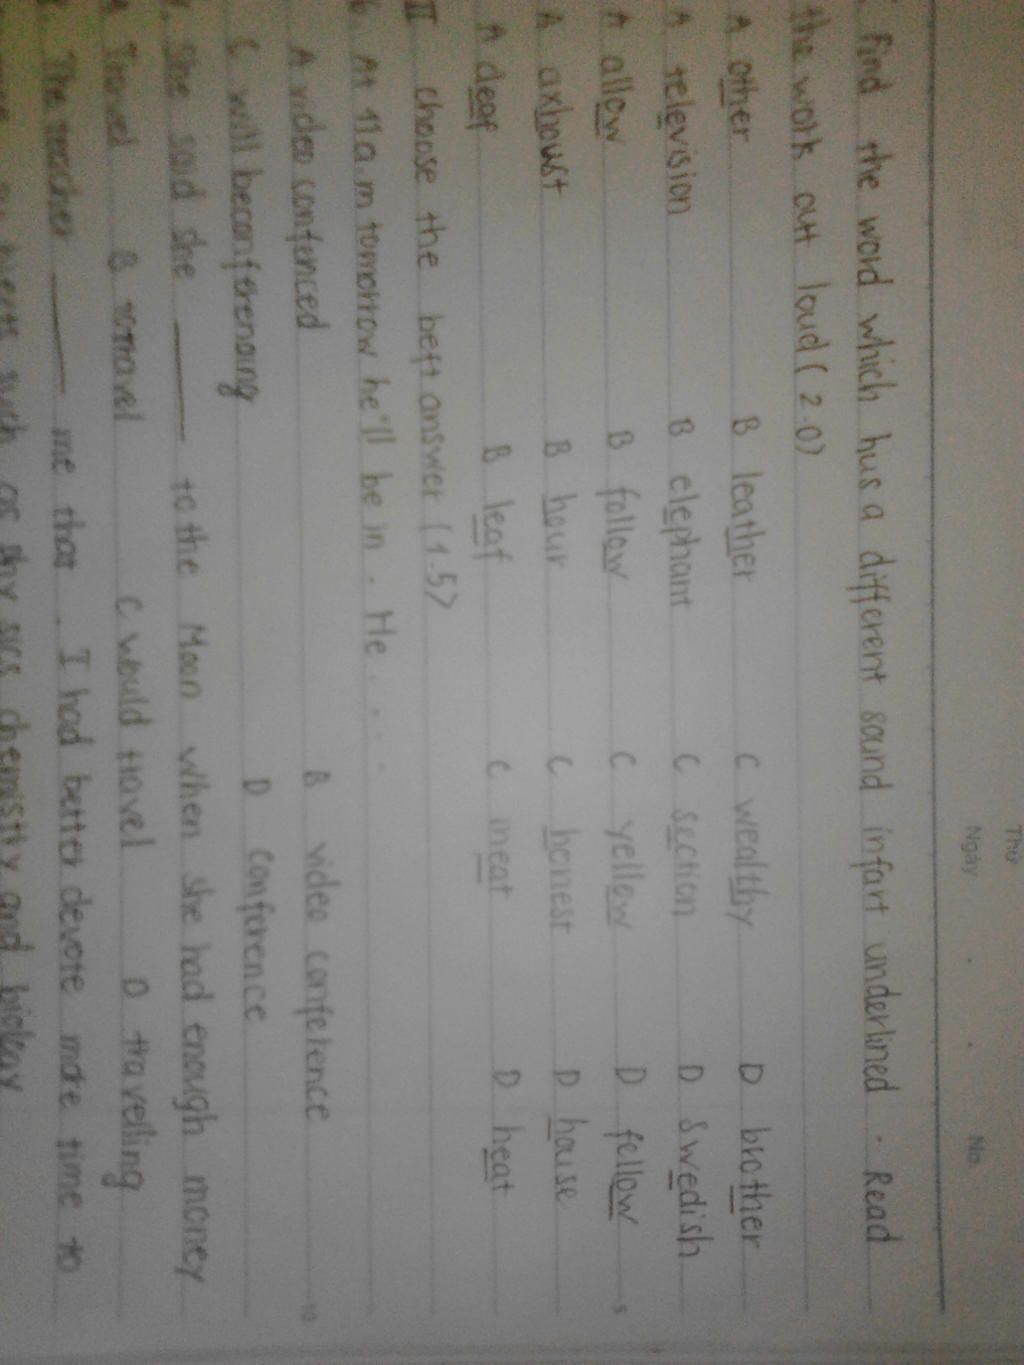 Thứ
Ngày . . No.
Find the word which has a different sound in fart underlined . Read
the work out loud ( 2.0)
A other B leather C wealthy D brother
A television B elephant C section D Swedish
A allow B follow C yellow D fellow
A axhoust B hour C honest D house
A deaf B leaf C meat D heat
II choose the beft answer ( 1.5)
6. At 11 a.m tomorrow he'll be in . He . . .
A video confenced B video conference
C will beconferencing D conference
7. She said she ______ to the Moon when she had enough money
A Travel B to travel C would travel D travelling
8. The teacher ______ me that . I had better devote more time to
such as physics chemistry and biology